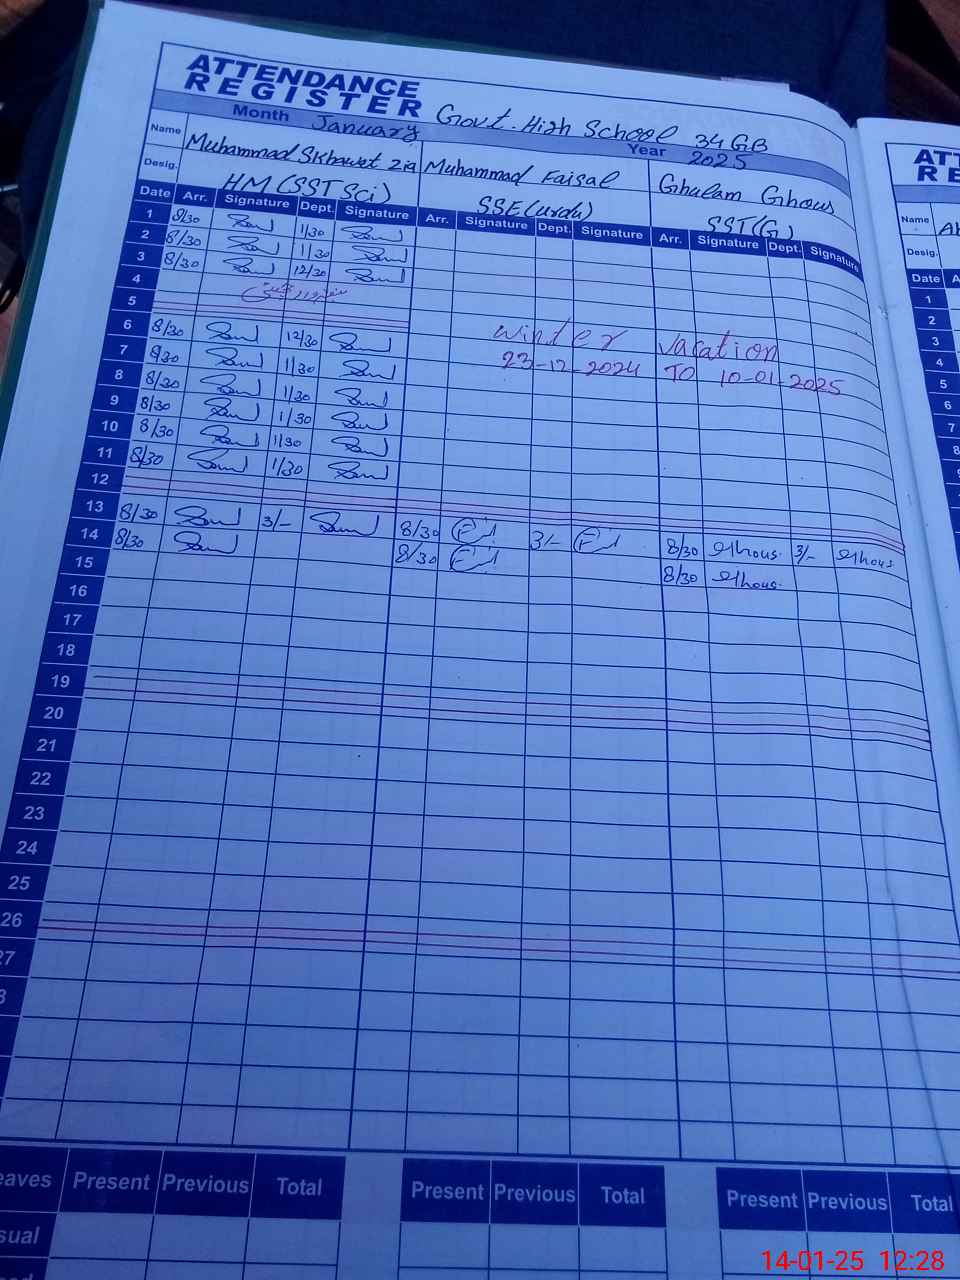 ATTENDANCE
REGISTER Govt. High School 34 GB
Month January Year 2025
Name Muhammad Skhawet Zia Muhammad Faisal Ghulam Ghous
Desig. HM (SST Sci) SSE (Urdu) SST (G)
Date Arr. Signature Dept. Signature Arr. Signature Dept. Signature Arr. Signature Dept. Signature
1 8/30 1/30
2 8/30 1/30
3 8/30 12/30
4
5
6 8/30 12/30
7 8/30 1/30
8 8/30 1/30
9 8/30 1/30
10 8/30 1/30
11 8/30 1/30
winter vacation
23-12-2024 TO 10-01-2025
12
13 8/30 3/- 8/30 3/- 8/30 Ghous 3/- Ghous
14 8/30 8/30 8/30 Ghous
15
16
17
18
19
20
21
22
23
24
25
26
27
eaves Present Previous Total Present Previous Total Present Previous Total
sual
ATT
RE
Name
Desig.
Date A
1
2
3
4
5
6
7
8
14-01-25 12:28